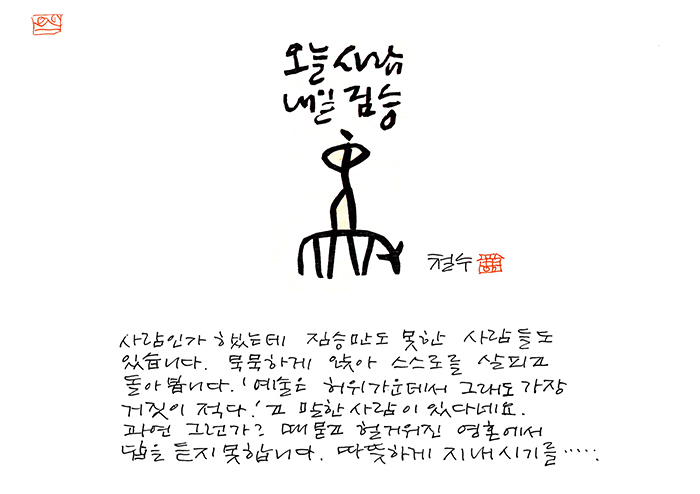 오늘 사람
내일 짐승
철수
사람인가 했는데 짐승만도 못한 사람들도
있습니다. 묵묵하게 앉아 스스로를 살피고
돌아봅니다. '예술은 허위가운데서 그래도 가장
거짓이 적다.'고 말한 사람이 있다네요.
과연 그런가? 때묻고 헐거워진 영혼에서
답을 듣지 못합니다. 따뜻하게 지내시기를·····.